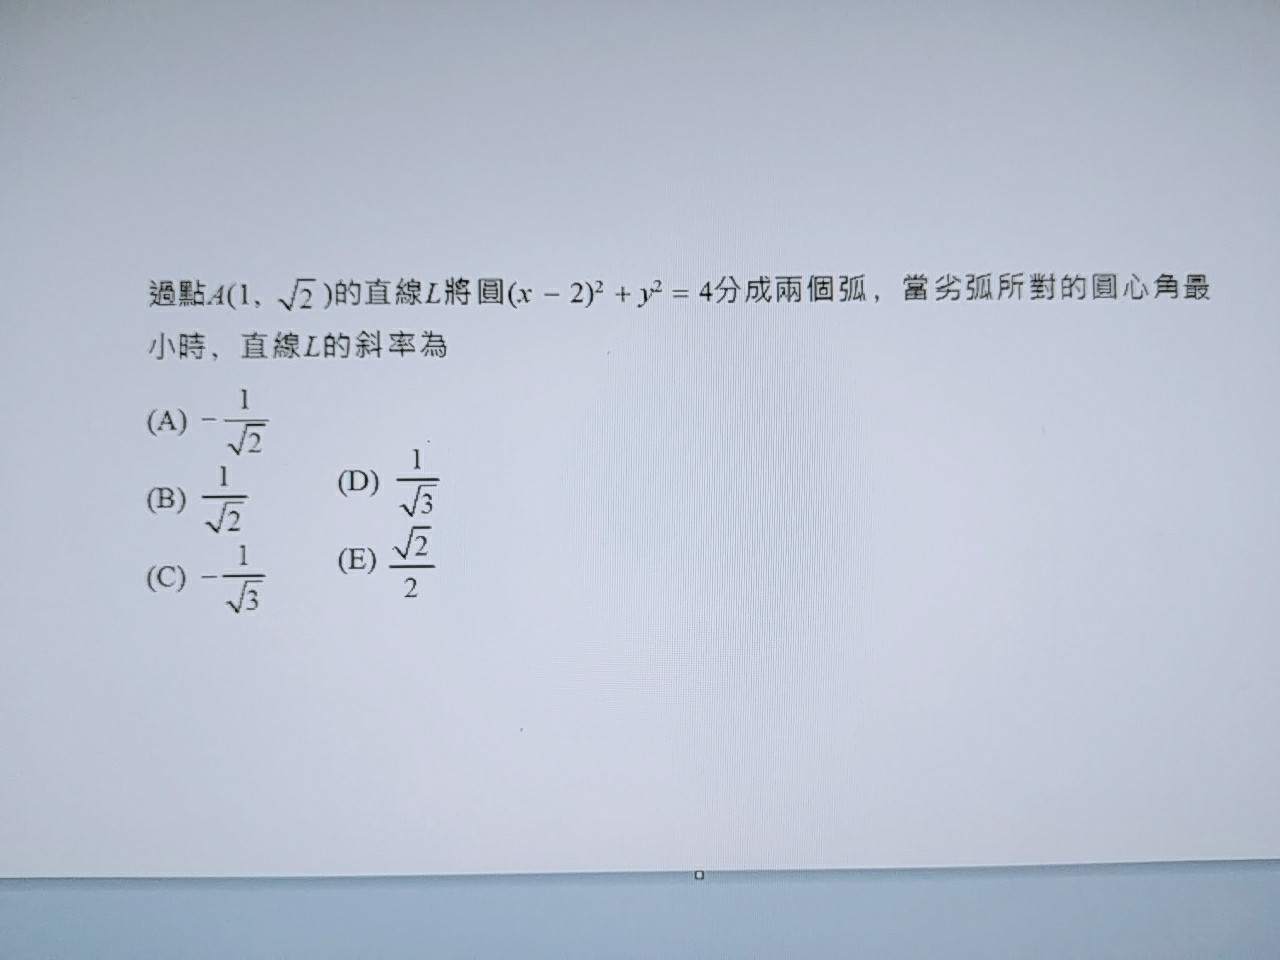 過點A(1, √2)的直線L將圓(x − 2)² + y² = 4分成兩個弧，當劣弧所對的圓心角最
小時，直線L的斜率為
(A) −1/√2
(B) 1/√2
(C) −1/√3
(D) 1/√3
(E) √2/2